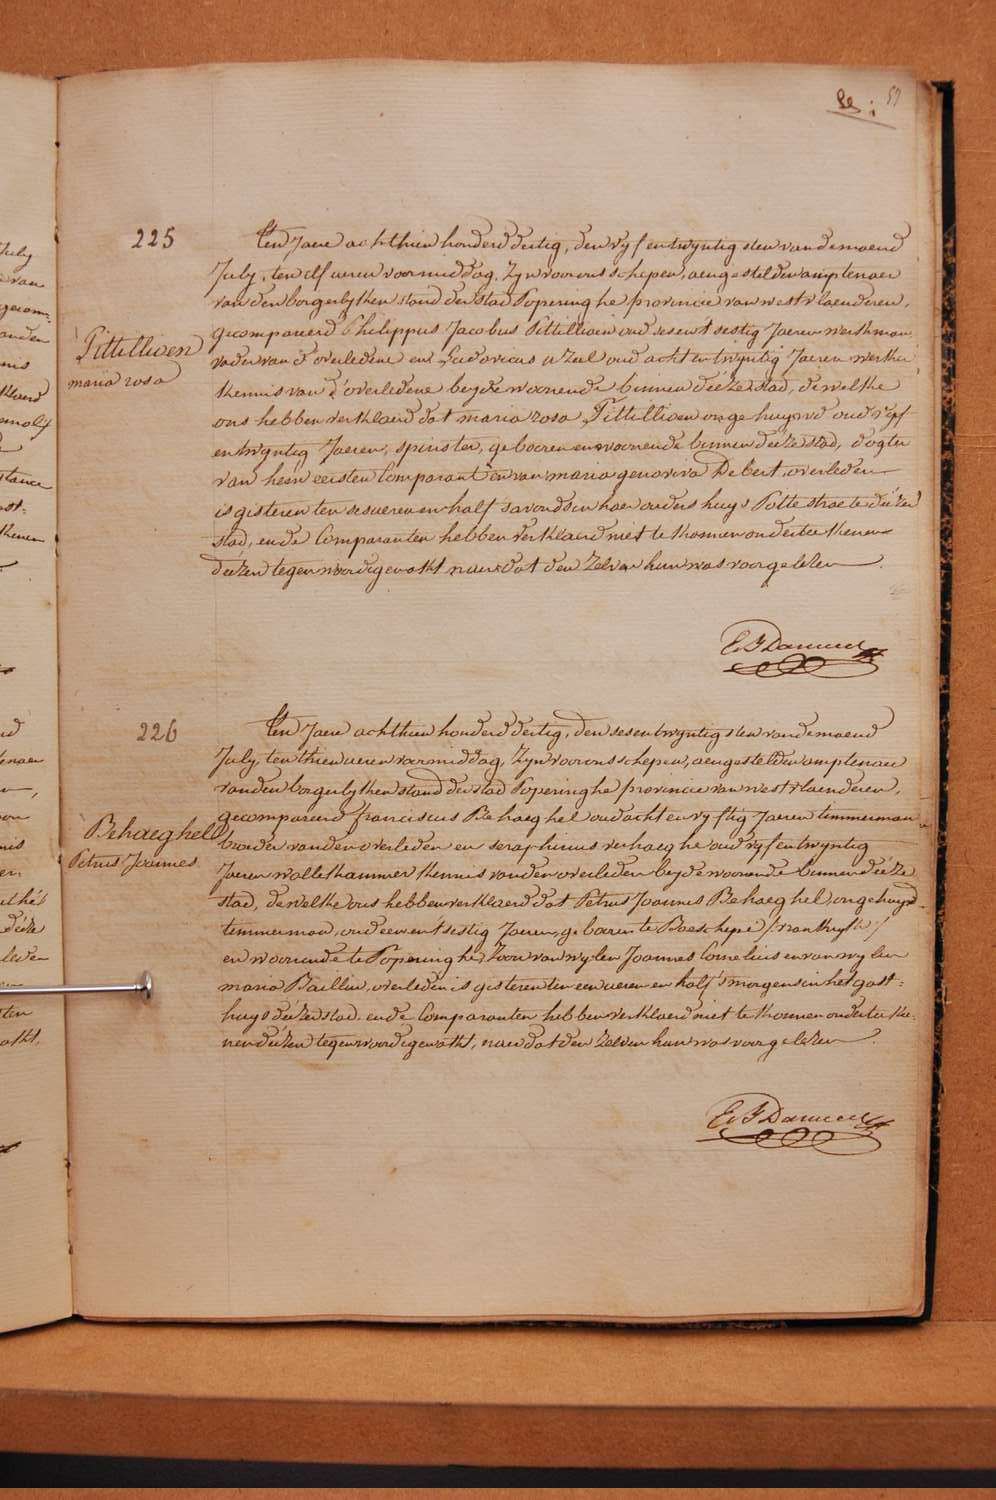 59
225
Ten Jaere achthien honderd dertig, den vyf en twyntig sten van de maend
July, ten elf ueren voormiddag, Zyn voor ons schepen, aengestelden amptenaer
van den borgerlyken stand der stad Poperinghe provincie van westvlaenderen,
gecompareerd Philippus Jacobus Tittillioen oud ses en't sestig Jaeren werkman
Tittillioen
vader van d'overledene en Ludovicus azeel oud acht en twyntig Jaeren werker
maria rosa
kennis van d'overledene beyde woonende binnen dieze stad, de welke
ons hebben verklaerd dat maria rosa Tittillioen ongehuywd oud vyf
en twyntig Jaeren, spinster, geboren en woonende binnen dieze stad, dogter
van hem eersten Comparant en van maria genoveva Debert, overleden
is gisteren ten ses ueren en half s'avonds in haer ouders huys Potte straete diezer
stad, en de Comparanten hebben verklaerd niet te konnen onderteekenen
diezen tegenwoordigen akt naer dat den zelven hun was voorgelezen
226
Ten Jaere achthien honderd dertig, den ses en twyntig sten van de maend
July, ten thien ueren voormiddag, Zyn voor ons schepen, aengestelden amptenaer
van den borgerlyken stand der stad Poperinghe provincie van westvlaenderen,
gecompareerd franciscus Behaeghel oud acht en vyftig Jaeren timmerman
Behaeghel
broeder van den overleden en seraphinus verhaeghe oud vyf en twyntig
Petrus Joannes
Jaeren wollekammer kennis van den overleden beyde woonende binnen dieze
stad, de welke ons hebben verklaerd dat Petrus Joannes Behaeghel, ongehuywd
timmerman, oud een en't sestig Jaeren, geboren te Boeschepe /:vrankryk:/
en woonende te Poperinghe, Zoon van wylen Joannes Cornelius en van wylen
maria Baillin, overleden is gisteren ten een ueren en half 's morgens in het gast=
huys diezer stad. en de Comparanten hebben verklaerd niet te konnen onderteeke=
nen diezen tegenwoordigen akt, naer dat den zelven hun was voorgelezen